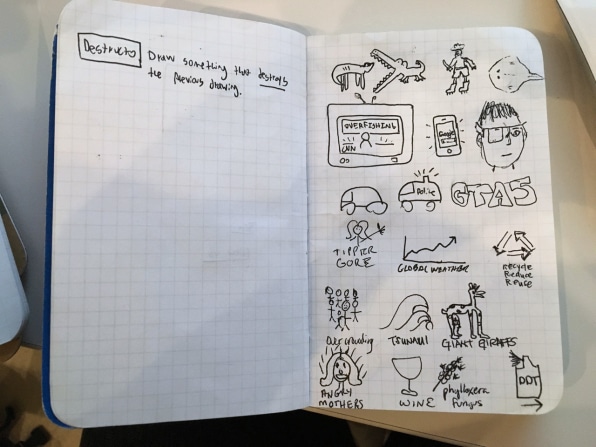 Destructo
Draw something that destroys
the previous drawing.
OVERFISHING
CNN
Google
Police
GTA5
TIPPER
GORE
GLOBAL WEATHER
RECYCLE
Reduce
Reuse
Overcrowding
TSUNAMI
GIANT GIRAFFS
ANGRY
MOTHERS
WINE
phylloxera
fungus
DDT